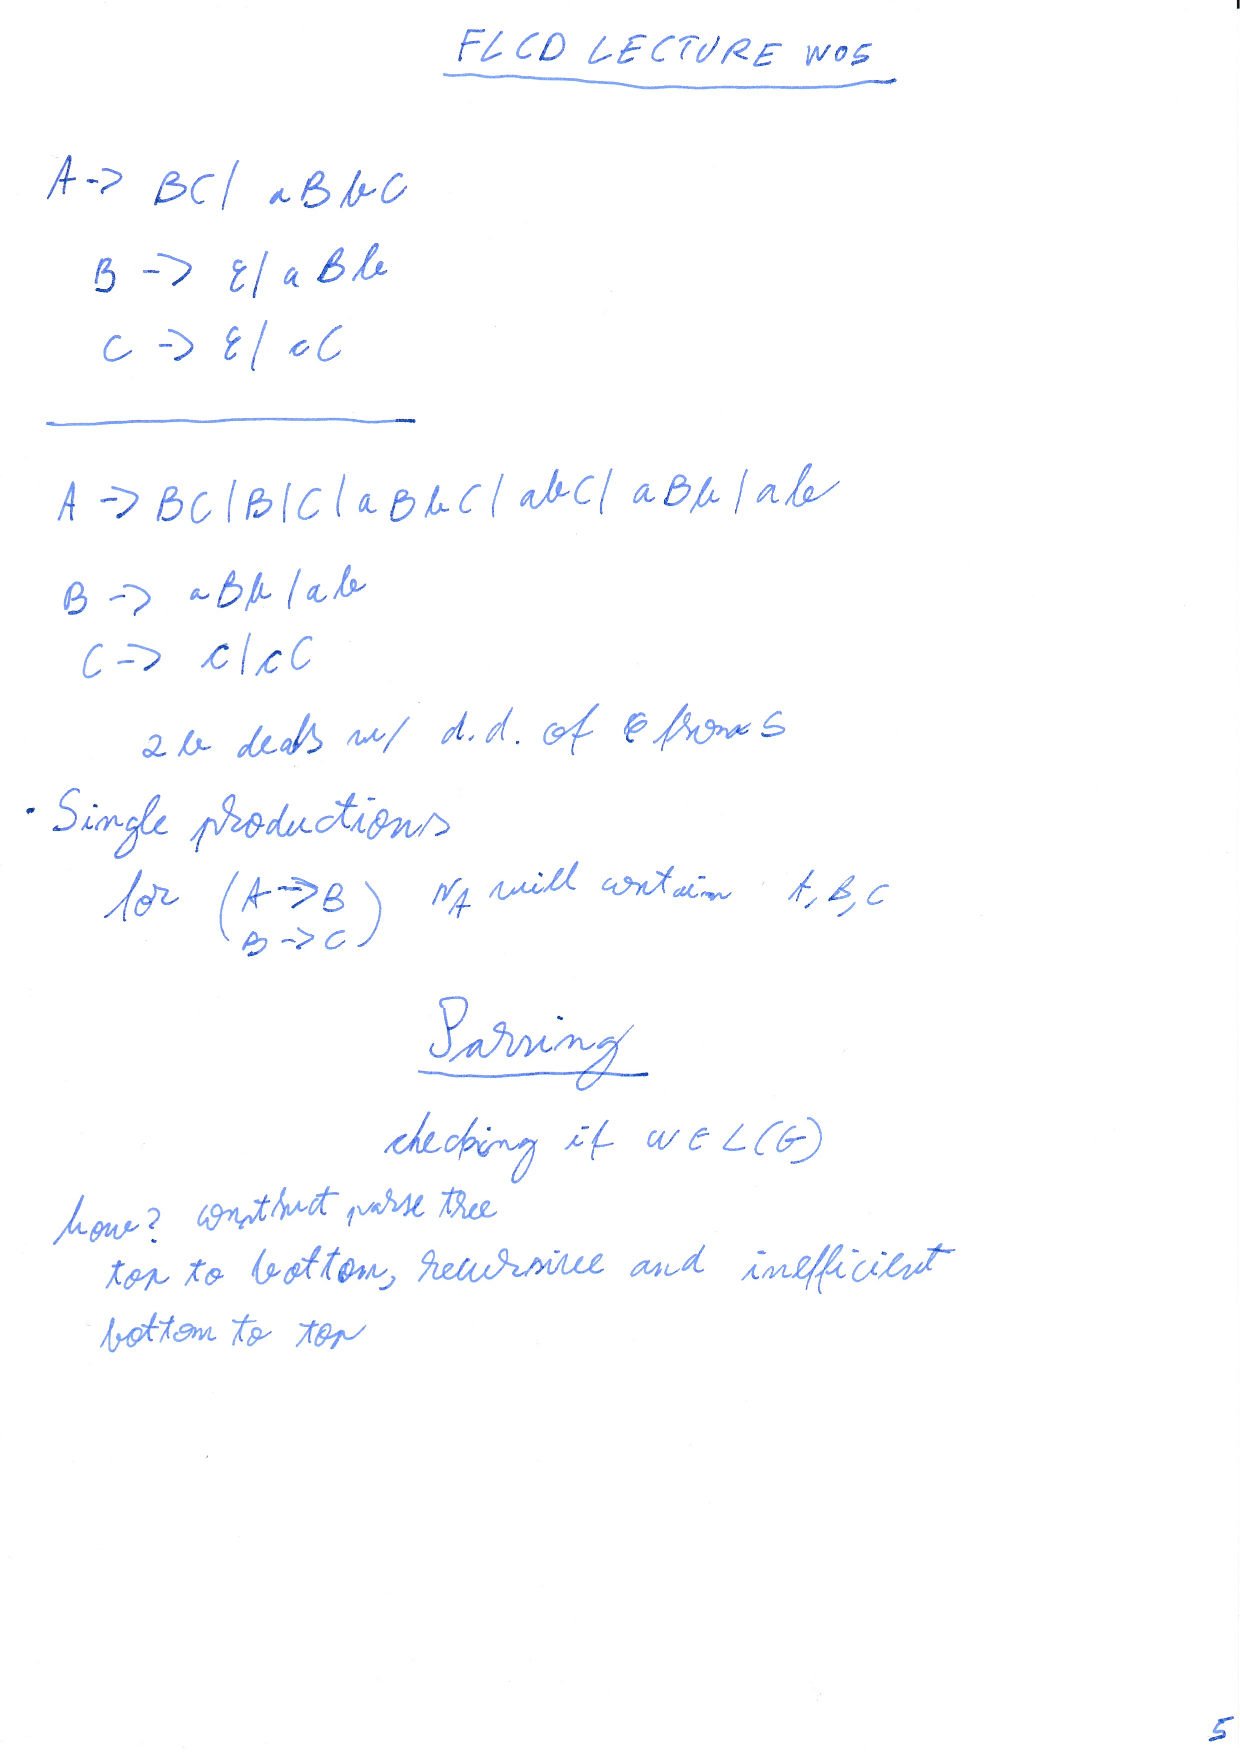 FLCD LECTURE W05
A -> BC | aBbC
B -> ε | aBb
C -> ε | cC
A -> BC | B | C | aBbC | abC | aBb | ab
B -> aBb | ab
C -> c | cC
2b deals w/ d.d. of ε from S
• Single productions
for (A -> B
B -> C) N_A will contain A, B, C
Parsing
checking if w ∈ L(G)
how? construct parse tree
top to bottom, recursive and inefficient
bottom to top
5